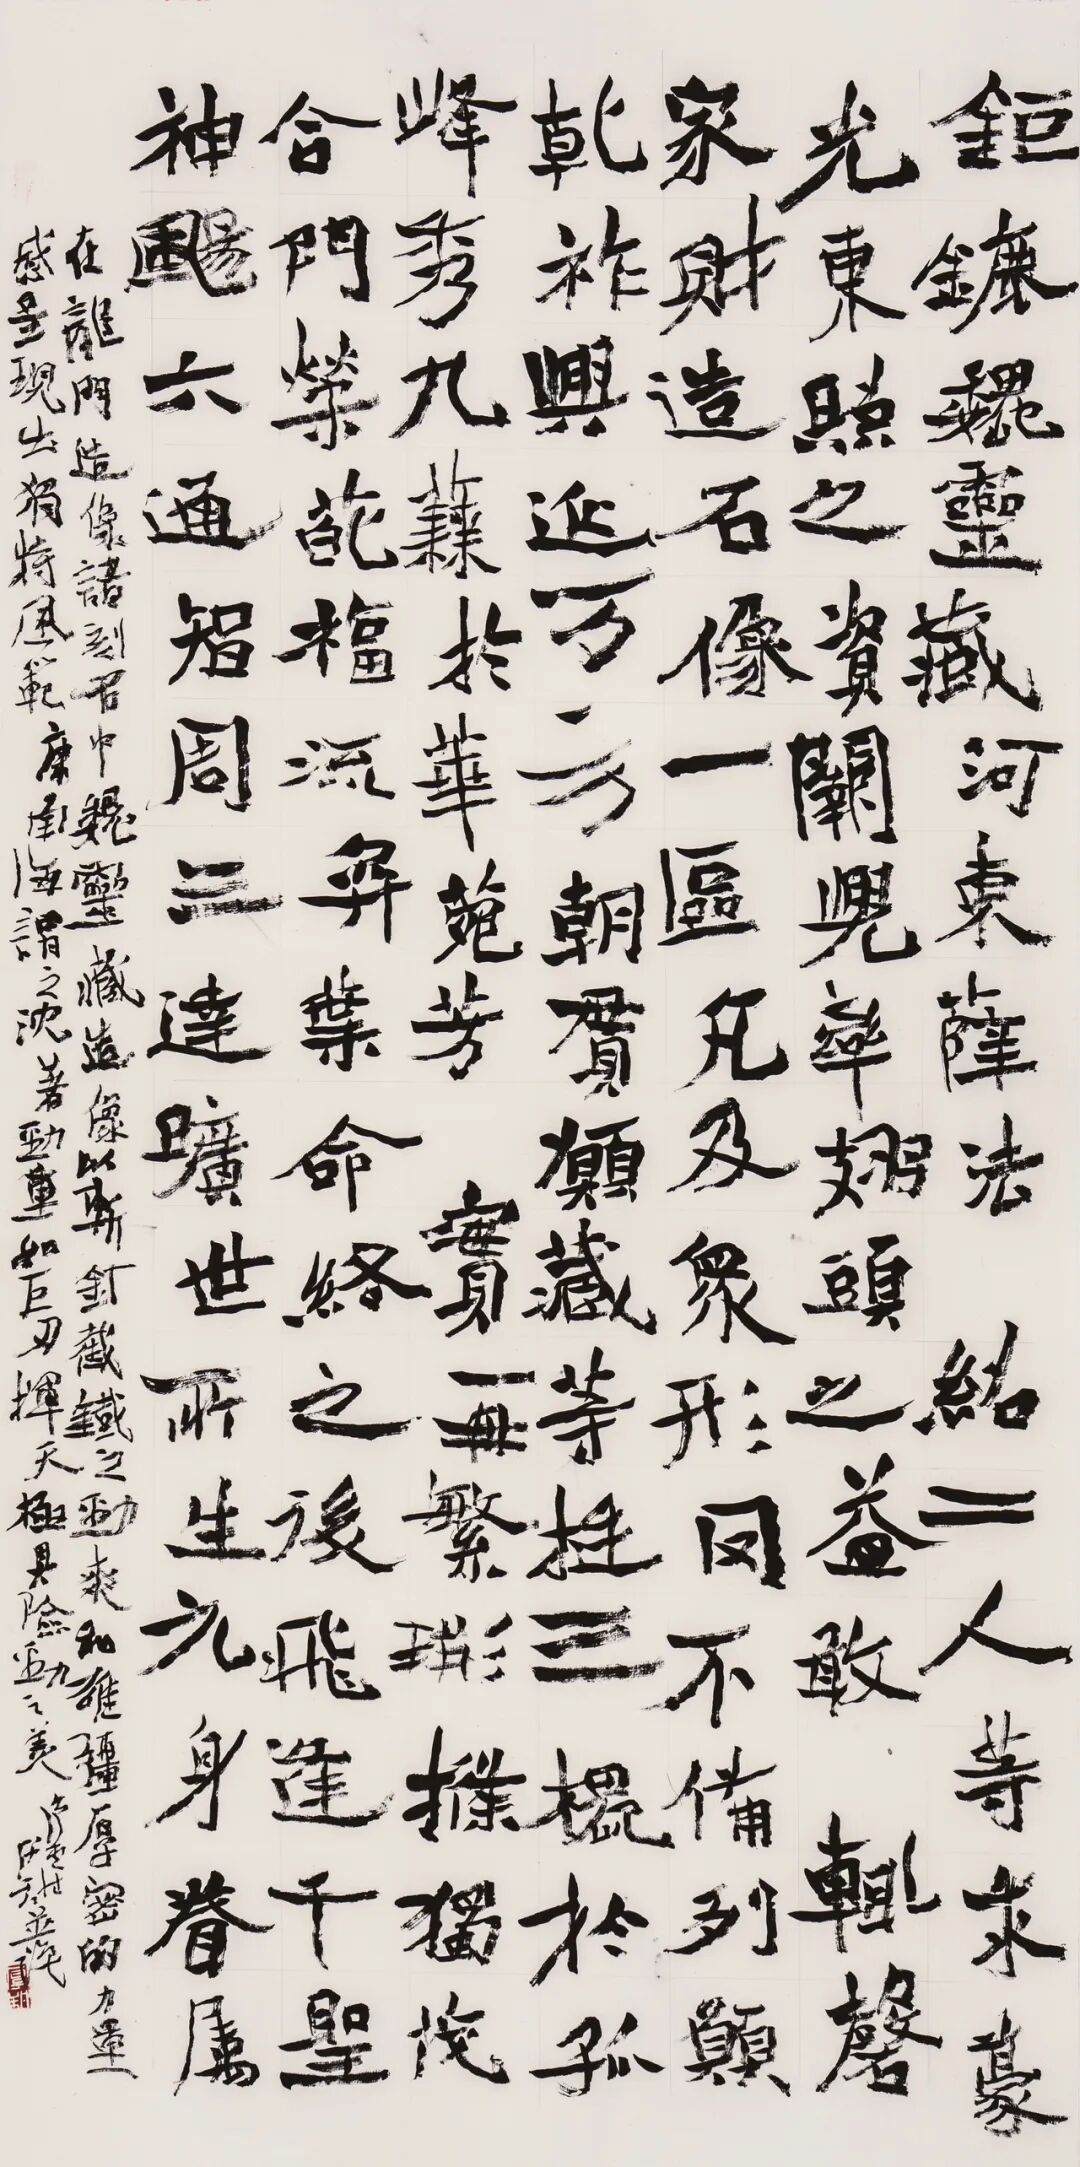 鉅鑣魏靈藏河東薛法紹二人等求豪
光東照之資闕兜率翅頭之益敢輒罄
家財造石像一區凡及眾形罔不備列願
乾祚興延万方朝貫願藏等挺三槐於孤
峰秀九蕀於華苑芳實再繁荊條獨茂
合門榮葩福流弈葉命終之後飛逢千聖
神颺六通智周三達曠世所生元身眷屬
在龍門造像諸刻石中魏靈藏造像以斬釘截鐵之勁爽和雄強厚密的力量
感呈現出獨特風範康南海謂之沈著勁重如巨刃揮天極具險勁之美